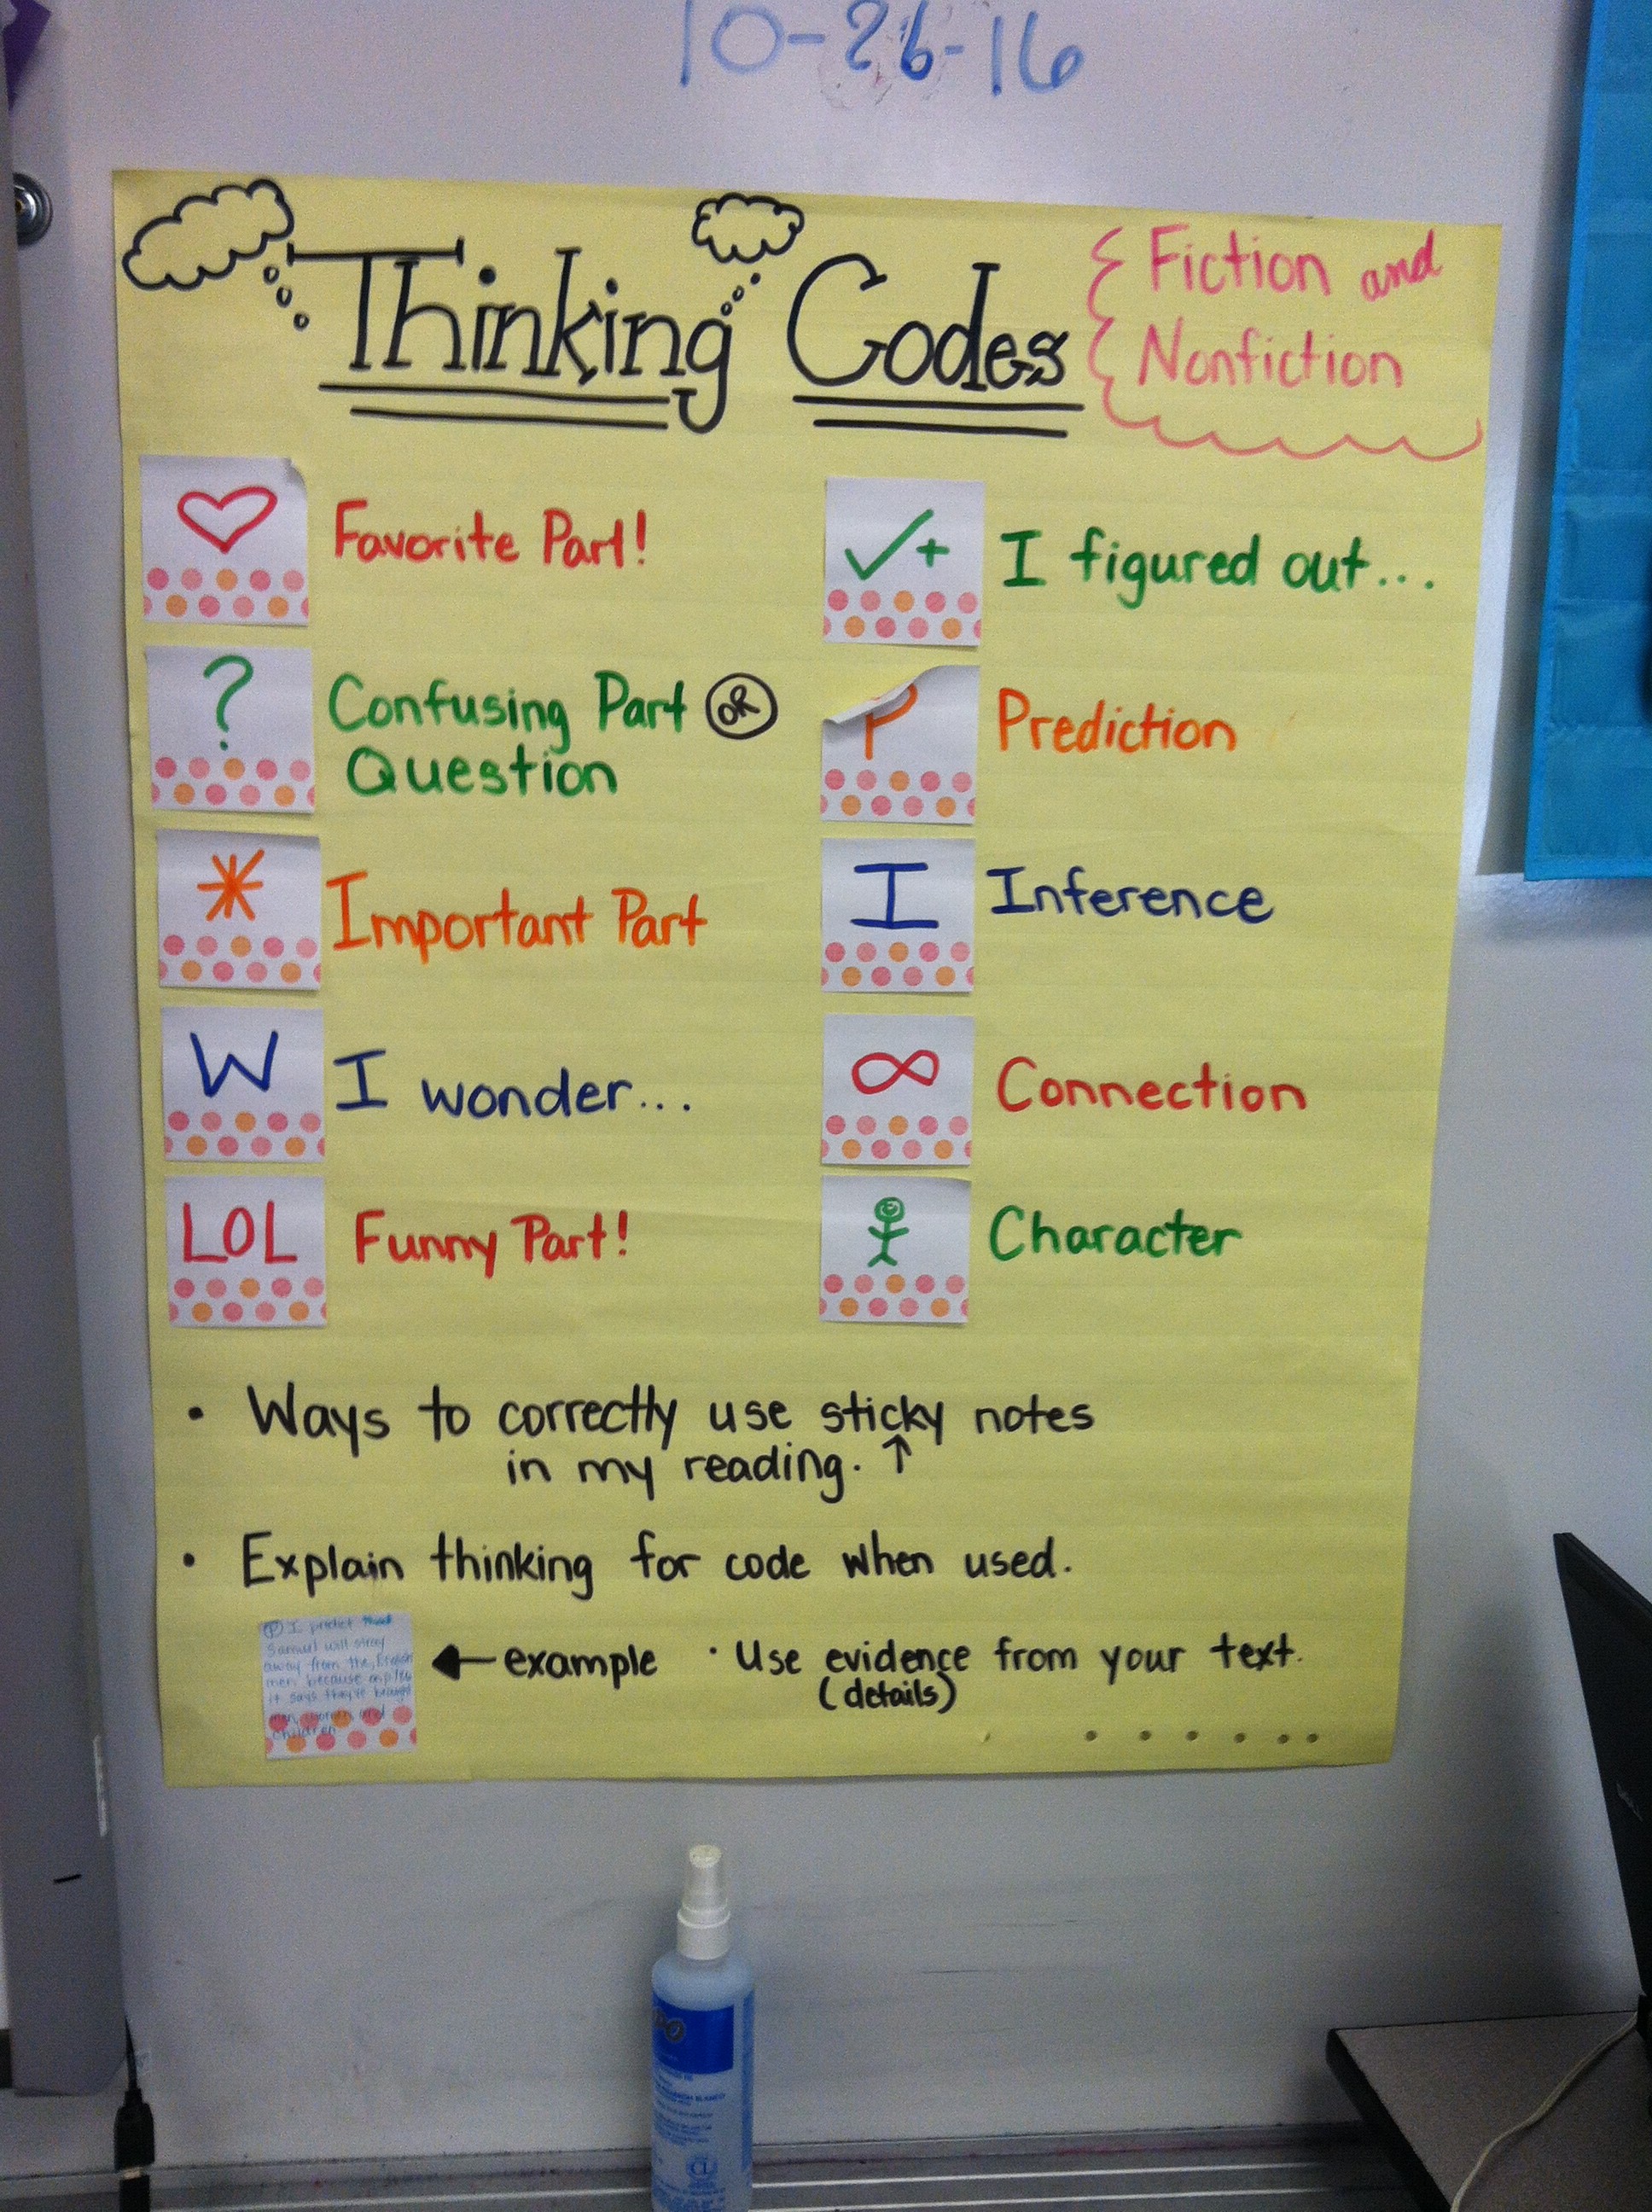 10-26-16
Thinking Codes
Fiction and
Nonfiction
Favorite Part!
✓+ I figured out...
? Confusing Part OR
Question
P Prediction
* Important Part
I Inference
W I wonder...
∞ Connection
LOL Funny Part!
Character
• Ways to correctly use sticky notes
in my reading. ↑
• Explain thinking for code when used.
P I predict that
Samuel will stray
away from the English
men because on
it says they're
men, women, and
children.
← example
• Use evidence from your text.
(details)